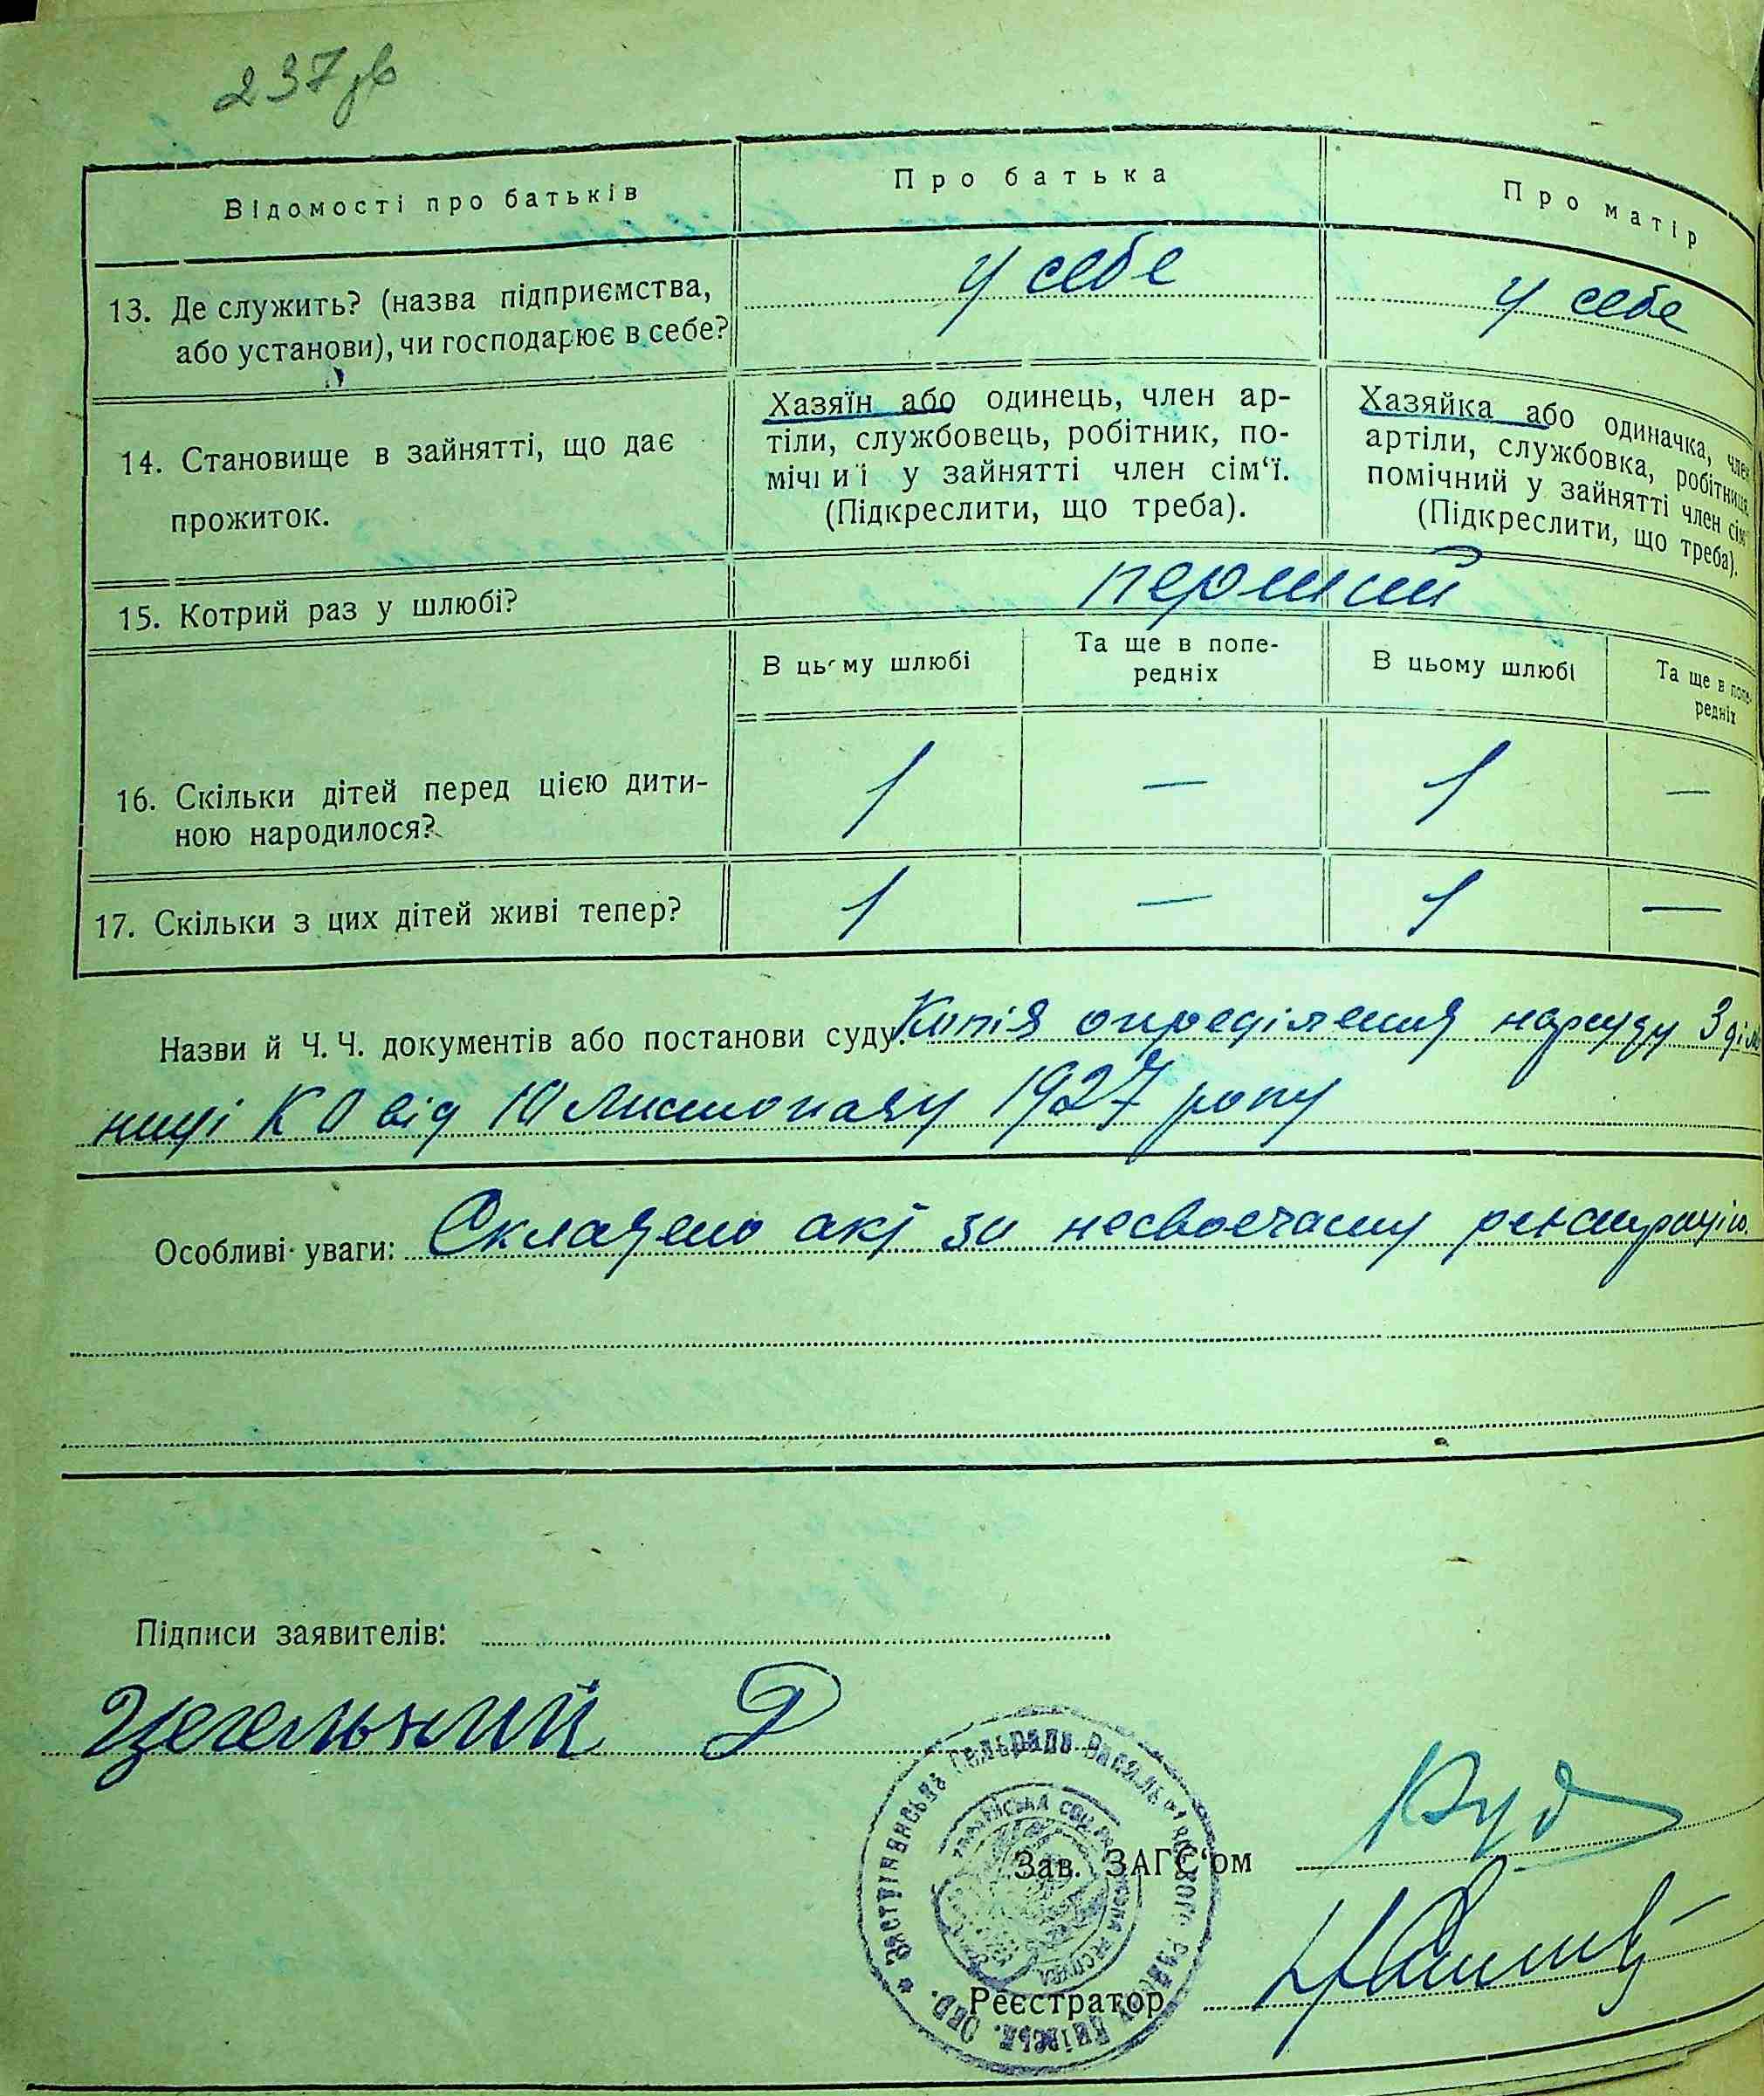 237зв
Відомості про батьків
Про батька
Про матір
13. Де служить? (назва підприємства,
або установи), чи господарює в себе?
У себе
У себе
14. Становище в зайнятті, що дає
прожиток.
Хазяїн або одинець, член ар-
тіли, службовець, робітник, по-
мічний у зайнятті член сім‘ї.
(Підкреслити, що треба).
Хазяйка або одиначка, член
артіли, службовка, робітниця,
помічний у зайнятті член сім‘ї
(Підкреслити, що треба).
15. Котрий раз у шлюбі?
перший
В цьому шлюбі
Та ще в попе-
редніх
В цьому шлюбі
Та ще в попе-
редніх
16. Скільки дітей перед цією дити-
ною народилося?
1 — 1 —
17. Скільки з цих дітей живі тепер?
1 — 1 —
Назви й Ч. Ч. документів або постанови суду: Копія опреділения нарсуду 3 діль
ниці К О від 10 Листопаду 1927 року
Особливі уваги: Складено акт за несвоечасну реєстрацію.
Підписи заявителів:
Цегельний
Зав. ЗАГС‘ом
Реєстратор
Застугнянська сельрада Васильківського району Київськ. окр.